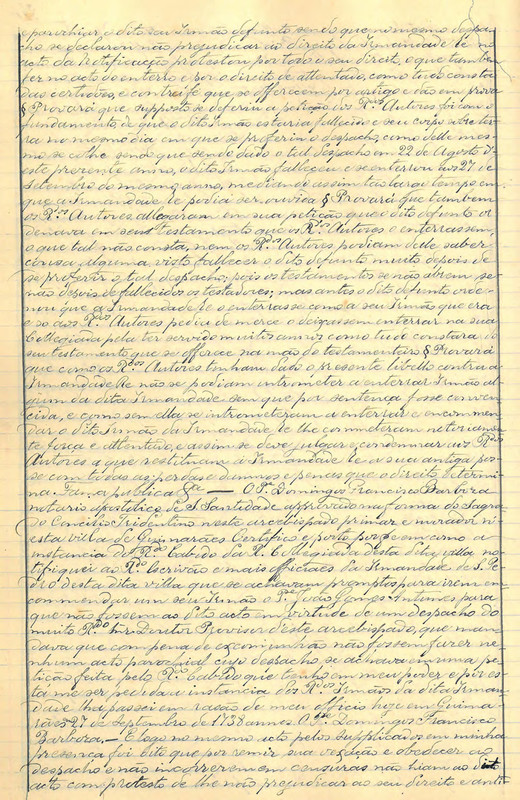 e parochiar, o dito seu Irmão defunto sendo que no mesmo despa-
cho se declarou não prejudicar ao direito da Irmandade Ré no
acto da Notificação protestou por todo o seu direito, o que tambem
fez no acto do enterro e por o direito de attentado, como tudo consta
das certidões, e contrafé que se offerecem por artigo e dão em prova
§ Provará que supposto se deferiu a petição dos R.dos Autores foi com o
fundamento, de que o dito Irmão estaria fallecido e seu corpo sobre a ter-
ra no mesmo dia em que se proferiu o despacho, como delle mes-
mo se colhe sendo que sendo dado o tal despacho em 22 de Agosto d'-
este presente anno, o dito Irmão falleceu e se enterrou aos 27 de
Setembro do mesmo anno, mediando assim tão largo tempo em
que a Irmandade Ré podia ser ouvida § Provará que tambem
os R.dos Autores allegaram em sua petição que o dito defunto or-
denava em seus testamento que os R.dos Autores o enterrassem,
o que tal não consta, nem os R.dos Autores podiam delle saber
cousa alguma, visto fallecer o dito defunto muito depois de
se proferir o tal despacho, pois os testamentos se não abrem se-
não depois de fallecidos os testadores; mas antes o dito defunto orde-
nou que a Irmandade Ré o enterrasse como a seu Irmão que era
e só aos R.dos Autores pediu de mercê o deixassem enterrar na sua
Collegiada pela ter servido muitos annos como tudo constará do
seu testamento que se offerece na mão do testamenteiro § Provará
que como os R.dos Autores tinham dado o presente libello contra a
Irmandade Ré não se podiam intrometer a enterrar Irmão al-
gum da dita Irmandade sem que por sentença fosse conven-
cida, e como sem ella se intrometeram a enterrar e encommen-
dar o dito Irmão da Irmandade Ré lhe commeteram notoriamen-
te força e attentado, e assim se deve julgar e condemnar aos R.dos
Autores a que restituam á Irmandade Ré a sua antiga pos-
se com todas as perdas e damnos e penas que o direito determi-
na. Fama publica &c — O P.e Domingos Francisco Barboza
notario apostolico de S. Santidade approvado na forma do Sagra-
do Concilio Tridentino neste arcebispado primaz e morador n'-
esta villa de Guimarães Certifico e porto por fé em como a
instancia do R.do Cabido da R. Collegiada desta dita villa no-
tifiquei ao R.do Escrivão e mais officiaes da Irmandade de S. Pe-
dro desta dita villa que se achavam promptos para irem en-
commendar um seu Irmão o P.e João Antunes para
que não fossem ao dito acto em virtude de um despacho do
muito R.do Snr. Doutor Provisor d'este arcebispado, que man-
dava que com pena de excommunhão não fossem fazer ne-
nhum acto parochial cujo despacho se achava em uma pe-
tição feita pelo R.do Cabido que tenho em meu poder e por es-
ta me ser pedida a instancia dos R.dos Irmãos da dita Irman-
dade lha passei em razão de meu officio hoje em Guima-
rães 27 de Septembro de 1738 annos O P.e Domingos Francisco
Barboza. — E logo no mesmo acto pelos supplicados em minha
presença foi dito que por remir sua vexação e obedecer ao
despacho e não incorrerem em censuras não hiam ao dito
acto com protesto de lhe não prejudicar ao seu direito e anti-